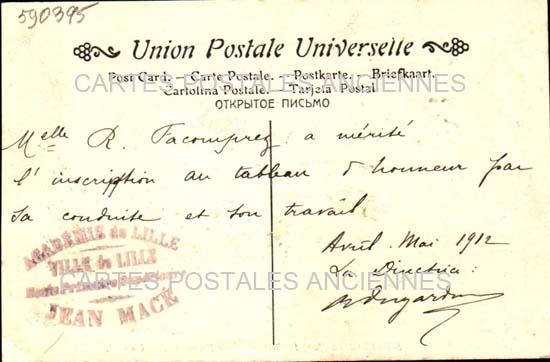 590395
Union Postale Universelle
Post Card. – Carte Postale. – Postkarte. – Briefkaart.
CARTES POSTALES ANCIENNES
Cartolina Postale. – Tarjeta Postal
ОТКРЫТОЕ ПИСЬМО
Melle R. Facomprez a mérité
l'inscription au tableau d'honneur par
sa conduite et son travail
ACADÉMIE de LILLE
VILLE de LILLE
JEAN MACÉ
Avril. Mai 1912
CARTES POSTALES ANCIENNES
La Directrice: